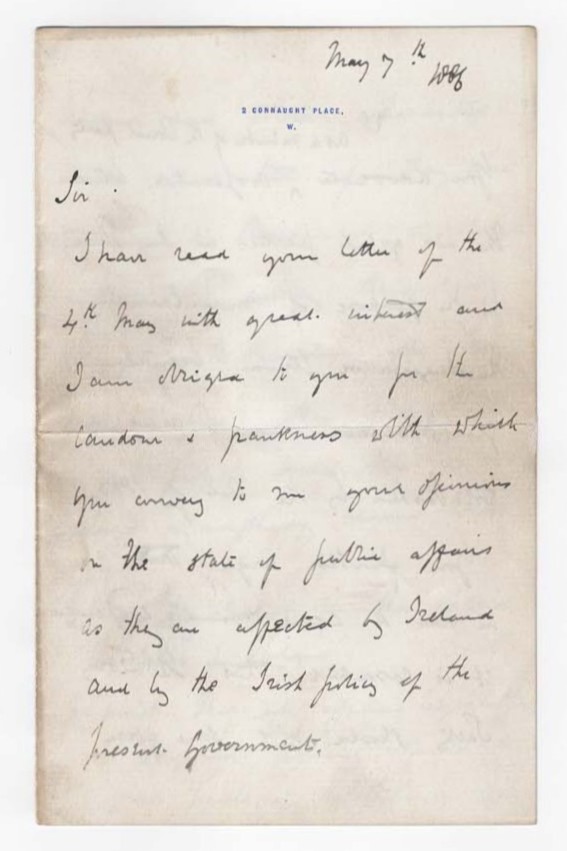 May 7th 1886
2 CONNAUGHT PLACE,
W.
Sir.
I have read your letter of the
4th May with great interest and
I am obliged to you for the
candour & frankness with which
you convey to me your opinions
on the state of public affairs
as they are affected by Ireland
and by the Irish policy of the
present Government.